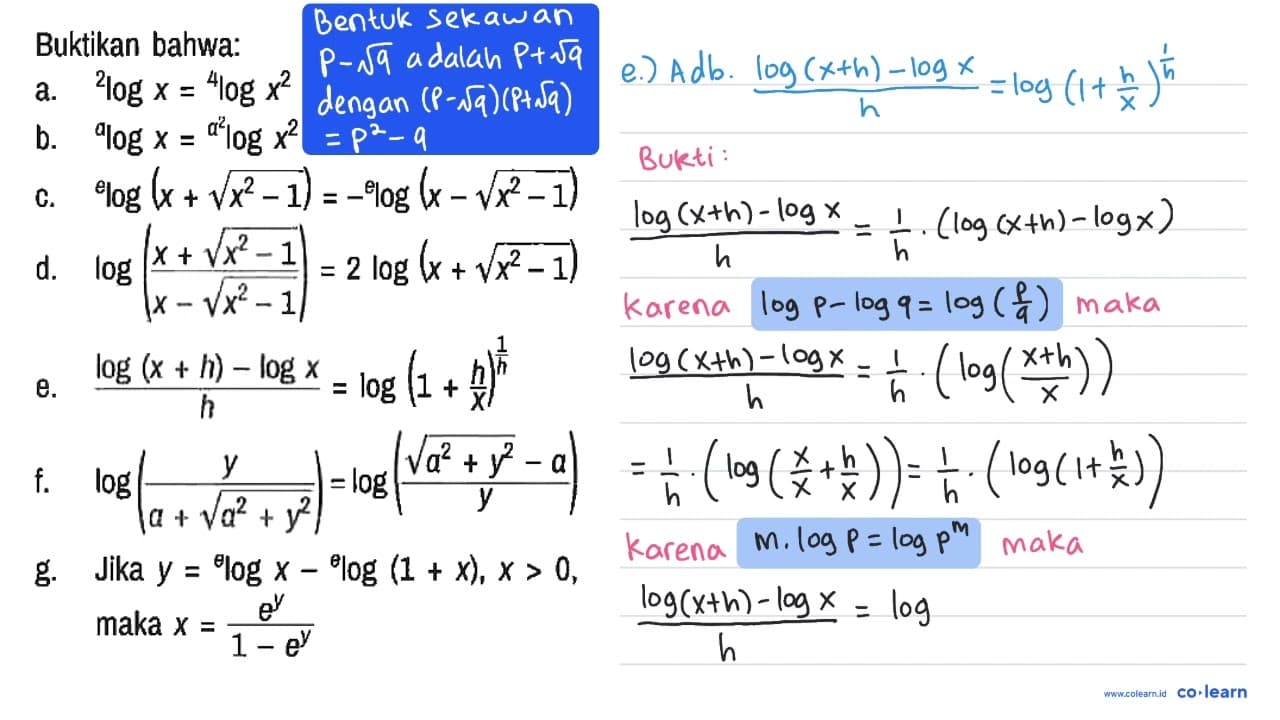 Buktikan bahwa:
a. ²log x = ⁴log x²
b. ᵃlog x = ᵃ²log x²
c. ᵉlog (x + √(x² − 1)) = −ᵉlog (x − √(x² − 1))
d. log ((x + √(x² − 1))/(x − √(x² − 1))) = 2 log (x + √(x² − 1))
e. (log (x + h) − log x)/h = log (1 + h/x)^(1/h)
f. log (y/(a + √(a² + y²))) = log ((√(a² + y²) − a)/y)
g. Jika y = ᵉlog x − ᵉlog (1 + x), x > 0,
maka x = e^y/(1 − e^y)
Bentuk sekawan
P-√q adalah P+√q
dengan (P-√q)(P+√q)
= P² - q
e.) Adb. (log (x+h) - log x)/h = log (1 + h/x)^(1/h)
Bukti:
(log (x+h) - log x)/h = 1/h . (log (x+h) - log x)
karena log p - log q = log (p/q) maka
(log (x+h) - log x)/h = 1/h . (log ((x+h)/x))
= 1/h . (log (x/x + h/x)) = 1/h . (log (1 + h/x))
karena m. log p = log p^m maka
(log(x+h) - log x)/h = log
www.colearn.id co·learn